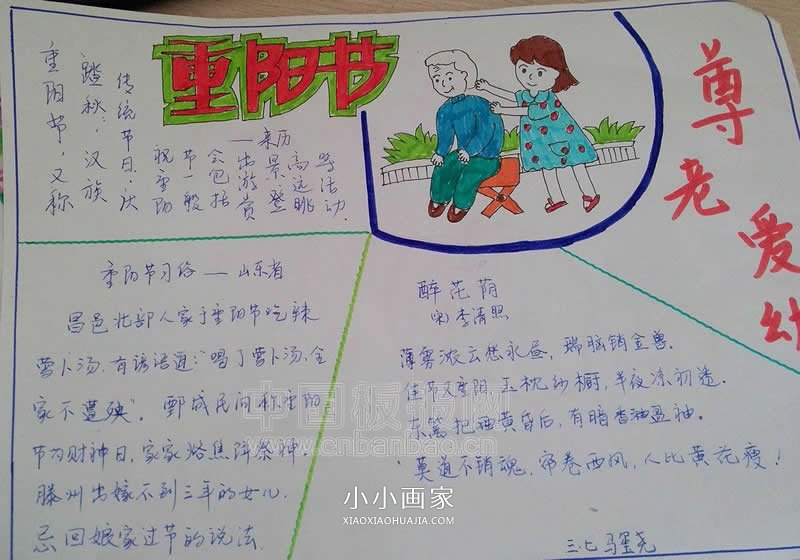 重阳节
——来历
重阳节，又称
踏秋：汉族
传统节日。庆
祝重阳
节一般
会包括
出游赏
景登
高远眺
等活动.
尊老爱幼
重阳节习俗——山东省
昌邑北部人家于重阳节吃辣
萝卜汤，有谚语道:"喝了萝卜汤，全
家不遭殃"。鄄城民间称重阳
节为财神日，家家烙焦饼祭神
滕州出嫁不到三年的女儿，
忌回娘家过节的说法.
醉花荫
(宋)李清照
薄雾浓云愁永昼，瑞脑销金兽。
佳节又重阳，玉枕纱橱，半夜凉初透。
东篱把酒黄昏后，有暗香盈袖。
莫道不销魂，帘卷西风，人比黄花瘦！
三.七 马
中国板报网
www.cnbanbao.cn
小小画家
XIAOXIAOHUAJIA.COM